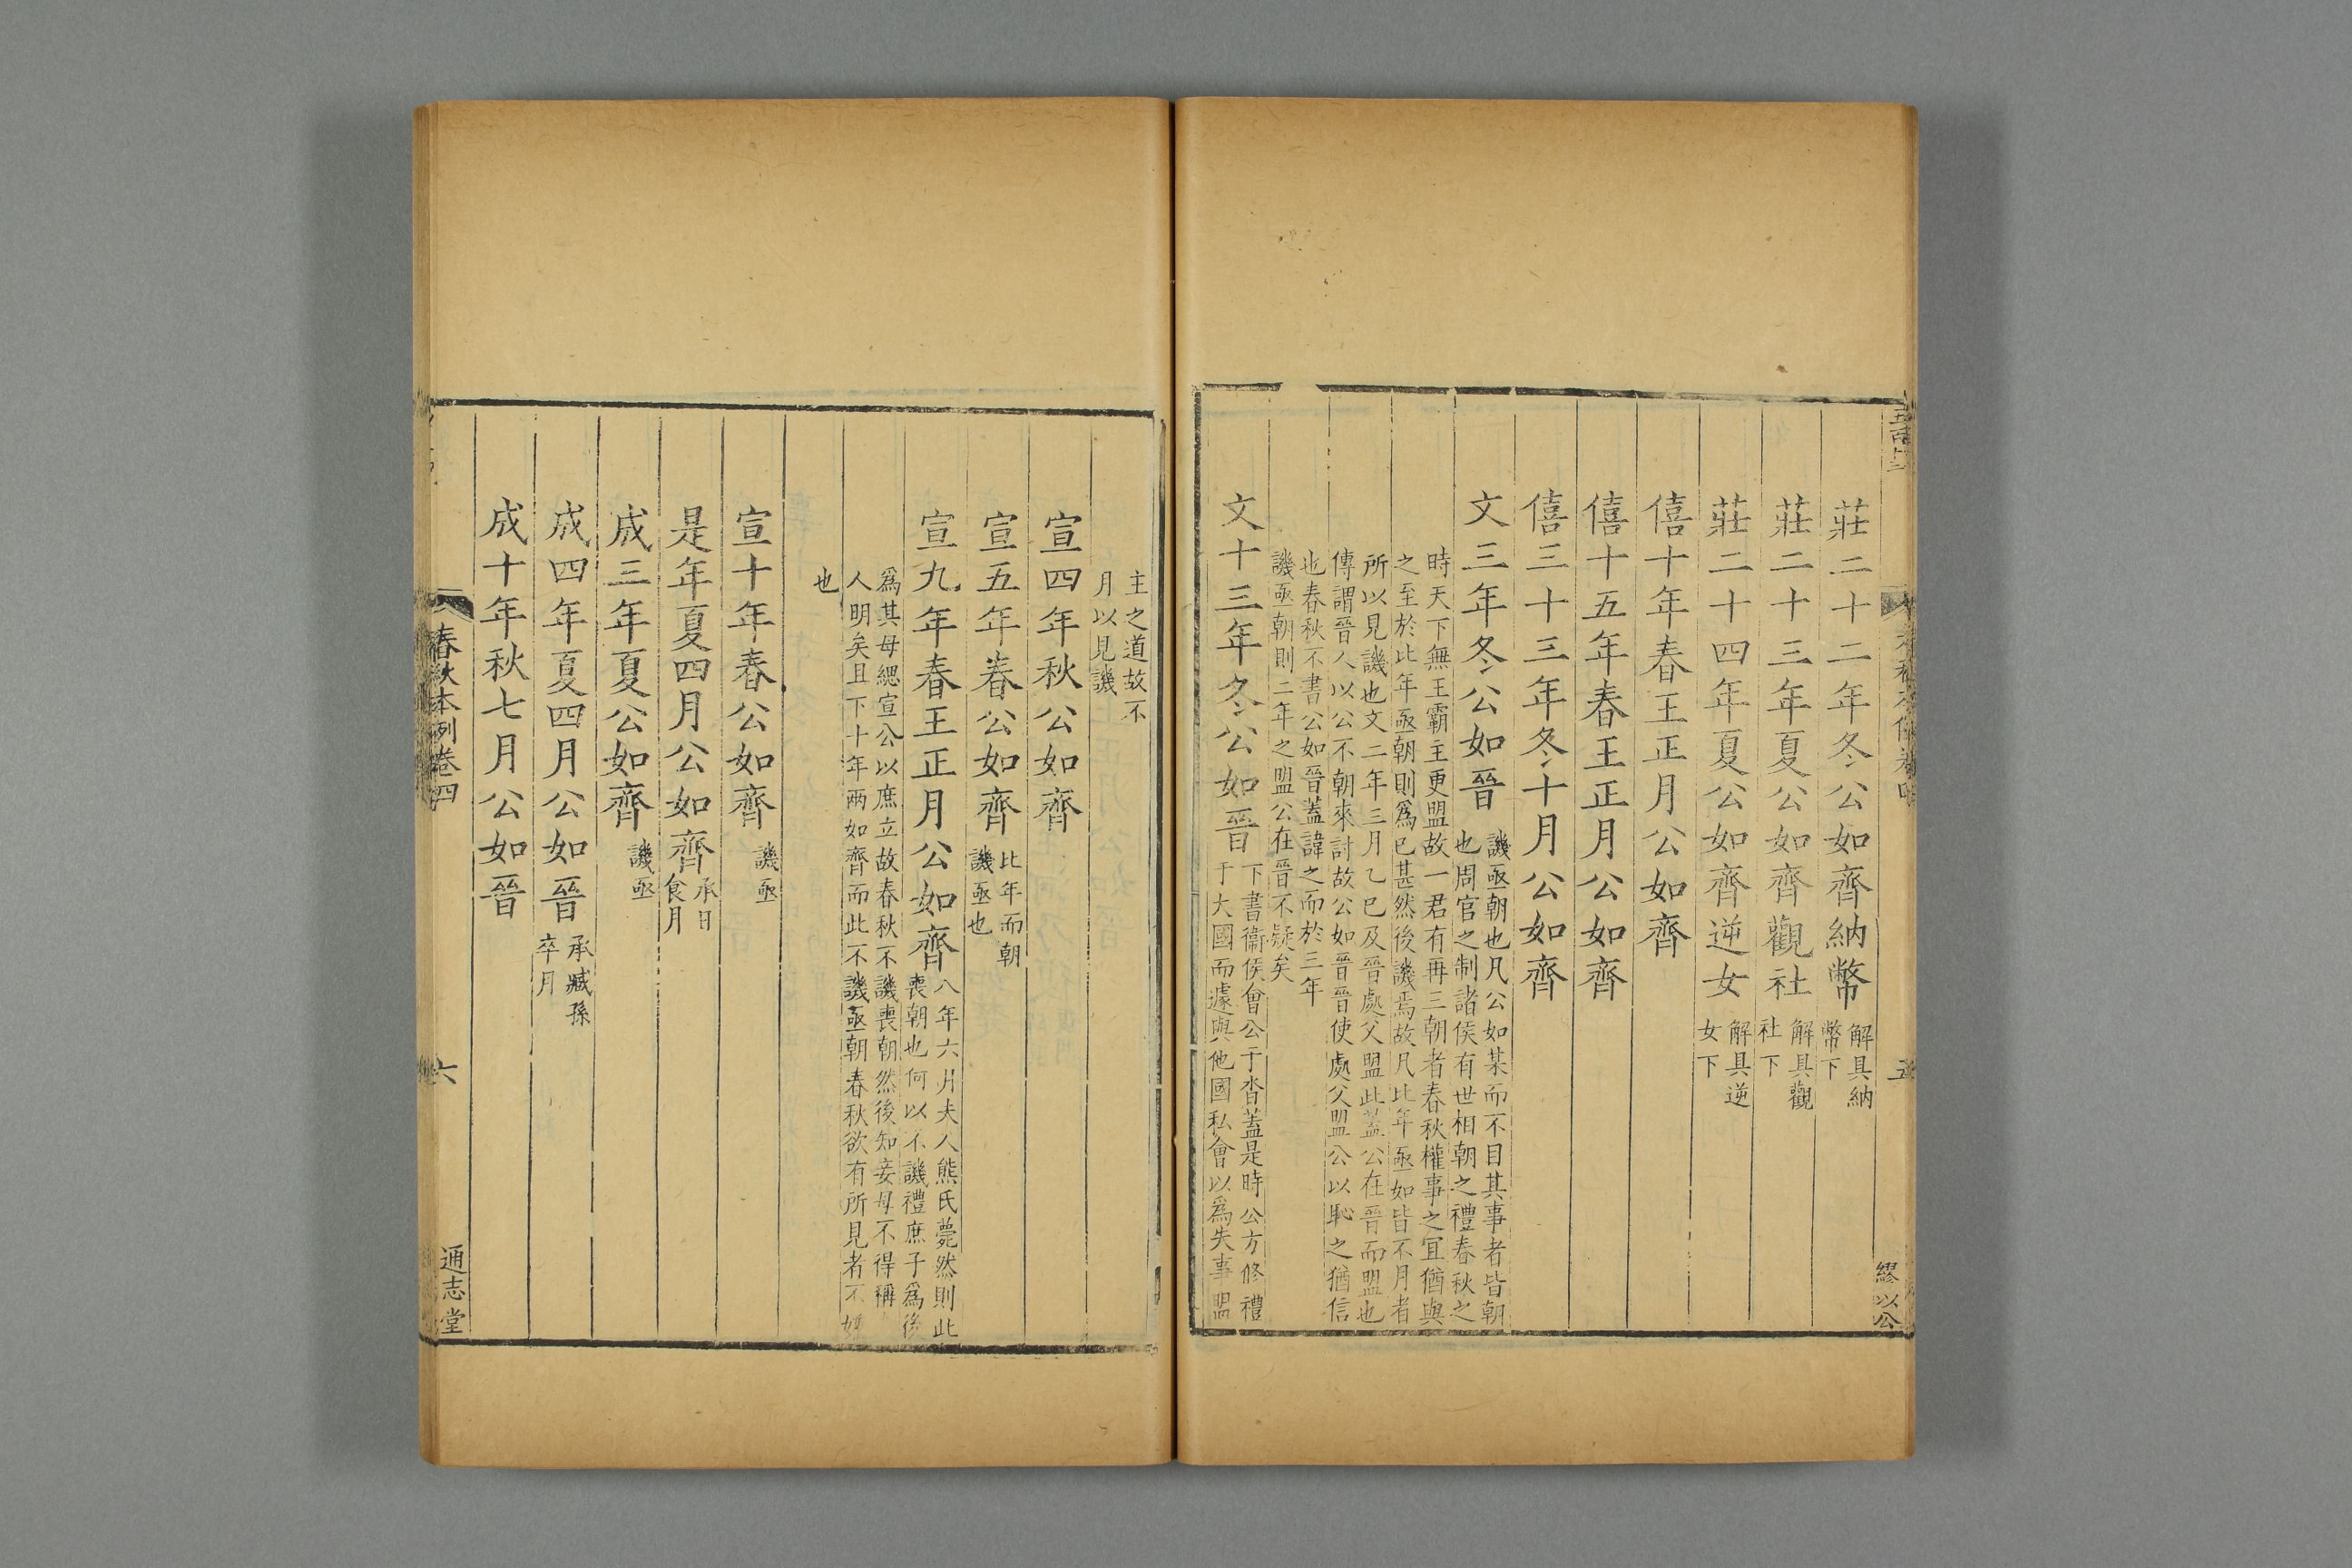 莊二十二年冬公如齊納幣 解具納
幣下
莊二十三年夏公如齊觀社 解具觀
社下
莊二十四年夏公如齊逆女 解具逆
女下
僖十年春王正月公如齊
僖十五年春王正月公如齊
僖三十三年冬十月公如齊
文三年冬公如晉 譏亟朝也凡公如某而不目其事者皆朝
也周官之制諸侯有世相朝之禮春秋之
時天下無王霸主更盟故一君有再三朝者春秋權事之宜猶與
之至於此年亟朝則爲已甚然後譏焉故凡比年亟如皆不月者
所以見譏也文二年三月乙巳及晉處父盟此蓋公在晉而盟也
傳謂晉人以公不朝來討故公如晉晉使處父盟公以恥之猶信
也春秋不書公如晉蓋諱之而於三年
譏亟朝則二年之盟公在晉不疑矣
文十三年冬公如晉 下書衞侯會公于沓蓋是時公方修禮
于大國而遽與他國私會以爲失事盟
主之道故不
月以見譏
宣四年秋公如齊
宣五年春公如齊 比年而朝
譏亟也
宣九年春王正月公如齊 八年六月夫人熊氏薨然則此
喪朝也何以不譏禮庶子爲後
爲其母緦宣公以庶立故春秋不譏喪朝然後知妾母不得稱
人明矣且下十年兩如齊而此不譏亟朝春秋欲有所見者不嫌
也
宣十年春公如齊 譏亟
是年夏四月公如齊 承日
食月
成三年夏公如齊 譏亟
成四年夏四月公如晉 承臧孫
卒月
成十年秋七月公如晉
春秋本例卷四
六
通志堂
五
繆以公